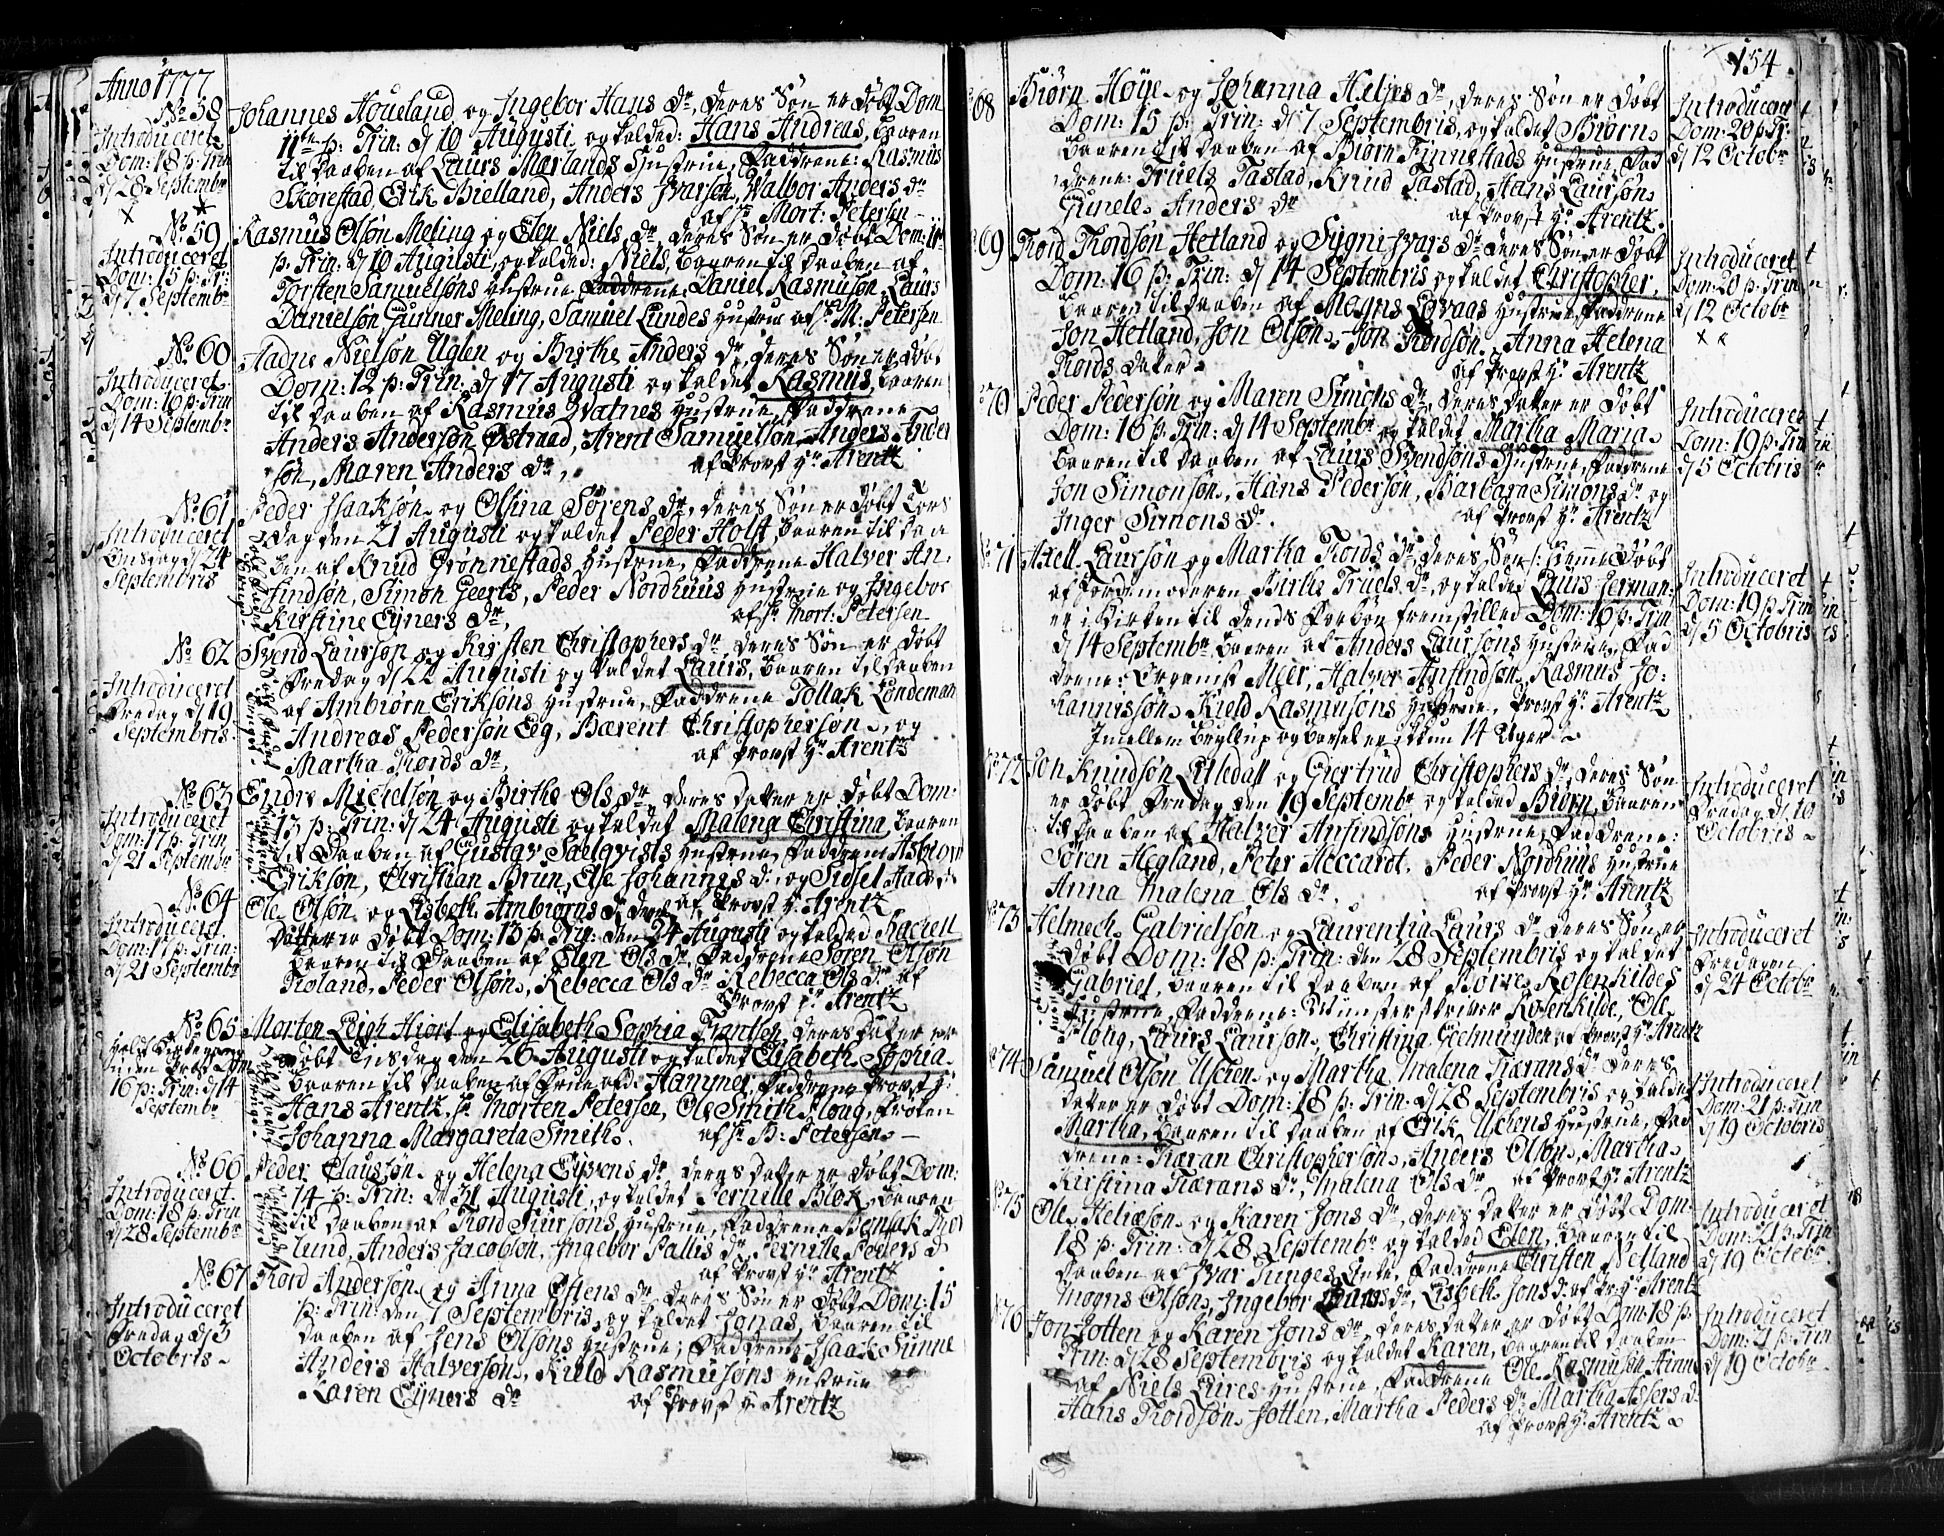 Anno 1777
No 58
Introduceret
Dom: 18 p: Trin
d 28 Septembr
Johannes Houeland og Ingebor Hans dr, deres Søn er døbt Dom
11te p: Trin: d 10 Augusti, og kalded: Hans Andreas, baaren
til daaben af Laurs Marlands Hustrue, Faddrene: Rasmus
Skorestad, Erik Bielland, Anders Ivarsøn, Walbor Anders dr
af hr Mort: Petersen
No 59
Introduceret
Dom: 15 p: Tr:
d 7 Septembr
Rasmus Olsøn Meling og Elen Niels dr, deres Søn er døbt Dom: 11te
p: Trin: d 10 Augusti, og kalded: Niels, baaren til daaben af
Torsten Samuelsøns Hustrue Faddrene Daniel Rasmusøn, Laurs
Danielsøn Gunner Meling, Samuel Lundes Hustrue af hr M: Petersen
No 60
Introduceret
Dom: 16 p: Trin
d 14 Septembr
Aadne Nielsøn Uglen og Birthe Anders dr, deres Søn er døbt
Dom: 12 p: Trin: d 17 Augusti og kaldet Rasmus, baaren
til daaben af Rasmus Hustrue, Faddrene
Anders Andersøn Østraad, Arent Samuelsøn Anders Ander
søn, Maren Anders dr, af Provst hr Arentz
No 61
Introduceret
Onsdag d 24
Septembris
Peder Isaaksøn og Olsina Sørens dr, deres Søn er døbt Tors
dag den 21 Augusti og kaldet Peder Holst, baaren til daa
ben af Knud Grønnestads Hustrue, Faddrene Halver An
findsøn, Simon Geerts, Peder Nordhuus Hustrue og Ingebor
Kirstine Ejners dr, af hr Mort: Petersen
No 62
Introduceret
Fredag d 19
Septembris
Svend Laursøn og Kirsten Christophers dr, deres Søn er døbt
Fredag d 22 Augusti og kaldet Laurs, baaren til daaben
af Ambiørn Eriksøns Hustrue, Faddrene Tollak Londeman
Andreas Pedersøn Eeg, Bærent Christophersøn, og
Martha Thords dr, af Provst hr Arentz
No 63
Introduceret
Dom: 17 p: Trin
d 21 Septembr
Endre Michelsøn og Birthe Ols dr, deres dater er døbt Dom:
13 p: Trin: d 24 Augusti og kaldet Malena Christina baaren
til daaben af Gustav Saelqvists Hustrue, Faddrene Asbiørn
Eriksøn, Christian Brun, Else Johannes dr, og Sidsel Aads dr
af Provst hr Arentz
No 64
Introduceret
Dom: 17 p: Trin:
d 21 Septembr
Ole Olsøn og Lisbeth Ambiørns dr deres
datter er døbt Dom: 13 p: Trin: den 24 Augusti og kaldet Rachell
baaren til daaben af Elen Ols dr, Faddrene Søren Olsøn
Roland, Peder Olsøn, Rebecca Ols dr Rebecca Ols dr af
Provst hr Arentz
No 65
16 p: Trin: d 14
Septembr
Morten Leigh Hiort og Elisabeth Sophia Krantsch, deres dater er
døbt Tisdag den 26 Augusti og kaldet Elisabeth Sophia
baaren til daaben af Frue Hammer, Faddrene Provst hr
Hans Arentz, hr Morten Petersen, Ole Smith Ploug, Frøken
Johanna Margareta Smith. af hr B: Petersen
No 66
Introduceret
Dom: 18 p: Trin
d 28 Septembr
Peder Clausøn og Helena Eyvens dr, deres dater er døbt Dom:
14 p: Trin: d 31 Augusti, og kaldet Pernille Blok, baaren
til daaben af Thord Siursøns Hustrue, Faddrene Thor
lund, Anders Jacobsøn, Ingebor Pallis dr, Pernille Peders dr
af Provst hr Arentz
No 67
Introduceret
Fredag d 3
Octobris
Thord Andersøn og Anna Eftens dr, deres Søn er døbt Dom: 15
p: Trin: den 7 Septembris, og kaldet Jonas, baaren til
daaben af Jens Olsøns Hustrue; Faddrene, Isaak Sunne
Anders Halversøn, Kield Rasmusøns Hustrue
Karen Ejners dr af Provst hr Arentz
154
68
Biørn Høye og Johanna Heljes dr, deres Søn er døbt
Dom: 15 p: Trin: d 7 Septembris, og kaldet Biørn
baaren til daaben af Biørn Finnestads Hustrue, Fad
drene: Truels Tastad, Knud Tastad, Hans Laursøn,
Gunele Anders dr af Provst hr Arentz.
Introduceret
Dom: 20 p: Tr:
d 12 Octobr
69
Thord Thordsøn Hetland og Sygni Ivars dr deres Søn er døbt
Dom: 16 p: Trin: d 14 Septembris og kaldet Christopher,
baaren til daaben af Mogns Hustrue, Faddrene
Jon Hetland, Jon Olsøn, Jon Thordsøn, Anna Helena
Thords dater af Provst hr Arentz
Introduceret
Dom: 20 p: Trin
d 12 Octobr
70
Peder Pedersøn og Maren Simons dr, deres dater er døbt
Dom: 16 p: Trin: d 14 Septembr og kaldet Martha Maria
baaren til daaben af Laurs Svendsøns Hustrue, Faddrene
Jon Simonsøn, Hans Pedersøn, Barbara Simons dr og
Inger Simons dr. af Provst hr Arentz
Introduceret
Dom: 19 p: Trin
d 5 Octobris
No 71
Axell Laursøn og Martha Thords dr, deres Søn /: hiemme døbt
af Jordemoderen Birthe Truels dr, og kaldet Laurs Herman:
er i Kirken til dends Forbøn fremstilled Dom: 16 p: Trin
d 14 Septembr baaren af Anders Laursøns Hustrue, Fad
drene: Meir, Halvor Anfindsøn, Rasmus Jo:
hannissøn, Kield Rasmusøns Hustrue, Provst hr Arentz
Imellem Bryllup og barsel er ikkun 14 Uger
Introduceret
Dom: 19 p: Trin
d 5 Octobris
No 72
Jon Knudsøn Lilledall og Giertrud Christophers dr, deres Søn
er døbt Fredag den 19 Septembr og kaldet Biørn, baaren
til daaben af Halver Anfindsøns Hustrue, Faddrene:
Søren Hegland, Peter Heccardt, Peder Nordhuus Hustrue
Anna Malena Ols dr. af Provst hr Arentz
Introduceret
Fredag d 10
Octobris
No 73
Helmech Gabrielsøn og Laurentia Laurs dr deres Søn er
døbt Dom: 18 p: Trin: den 28 Septembris og kaldet
Gabriel, baaren til daaben af Børre Rosenkildes
Hustrue, Faddrene: Rosenkilde, Ole
Ploug, Laurs Laursøn, Christina Geelmuyden af Provst hr Arentz
Introduceret
Fredagen
d 24 Octobr
No 74
Samuel Olsøn Uschen og Martha Malena Tiærans dr deres
dater er døbt Dom: 18 p: Trin: d 28 Septembris og kaldet
Martha, baaren til daaben af Erik Uschens Hustrue, Fad
drene: Tiæran Christophersøn, Anders Olsøn, Martha
Kirstina Tiærans dr, Malena Ols dr af Provst hr Arentz
Introduceret
Dom: 21 p: Trin
d 19 Octobris
No 75
Ole Helræsøn og Karen Jons dr, deres dater er døbt Dom:
18 p: Trin: d 28 Septembr og kaldet Elen, baaren til
daaben af Ivar Tunges Enke, Faddrene Christen Nelland
Mogns Olsøn, Ingebor dr, Lisbeth Jons d. af Pr: hr Arentz
Introduceret
Dom: 21 p: Trin
d 19 Octobr
76
Jon Jotten og Karen Jons dr deres dater er døbt Dom: 18 p:
Trin: d 28 Septembris og kaldet Karen, baaren til daaben
af Niels Lures Hustrue, Faddrene Ole Rasmusøn Hinne
Hans Thordsøn Jotten, Martha Peders dr, Martha Assers dr
af Provst hr Arentz
Introduceret
Dom: 21 p: Trin
d 19 Octobr